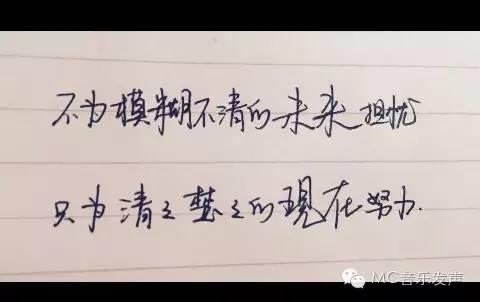 不为模糊不清的未来担忧
只为清々楚々的现在努力.
MC音乐发声